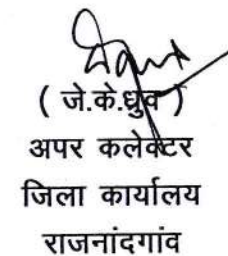 ( जे.के.ध्रुव )
अपर कलेक्टर
जिला कार्यालय
राजनांदगांव